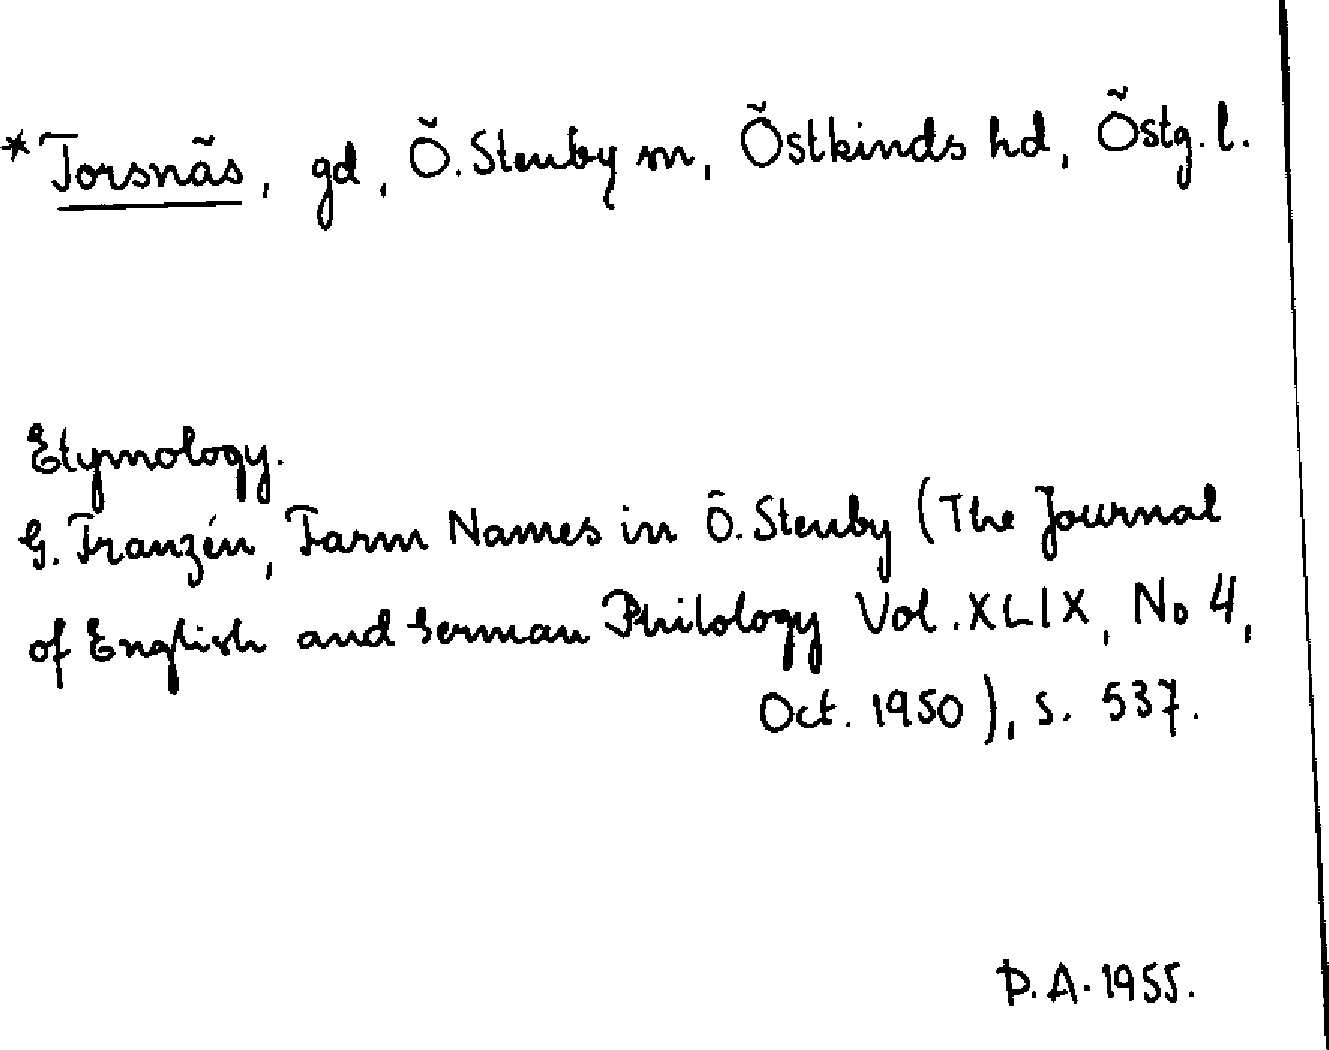 *Torsnäs, gd, Ö. Stenby sn, Östkinds hd, Östg. l.
Etymology.
G. Franzén, Farm Names in Ö. Stenby (The Journal
of English and German Philology Vol. XLIX, No 4,
Oct. 1950), s. 537.
D.A. 1955.